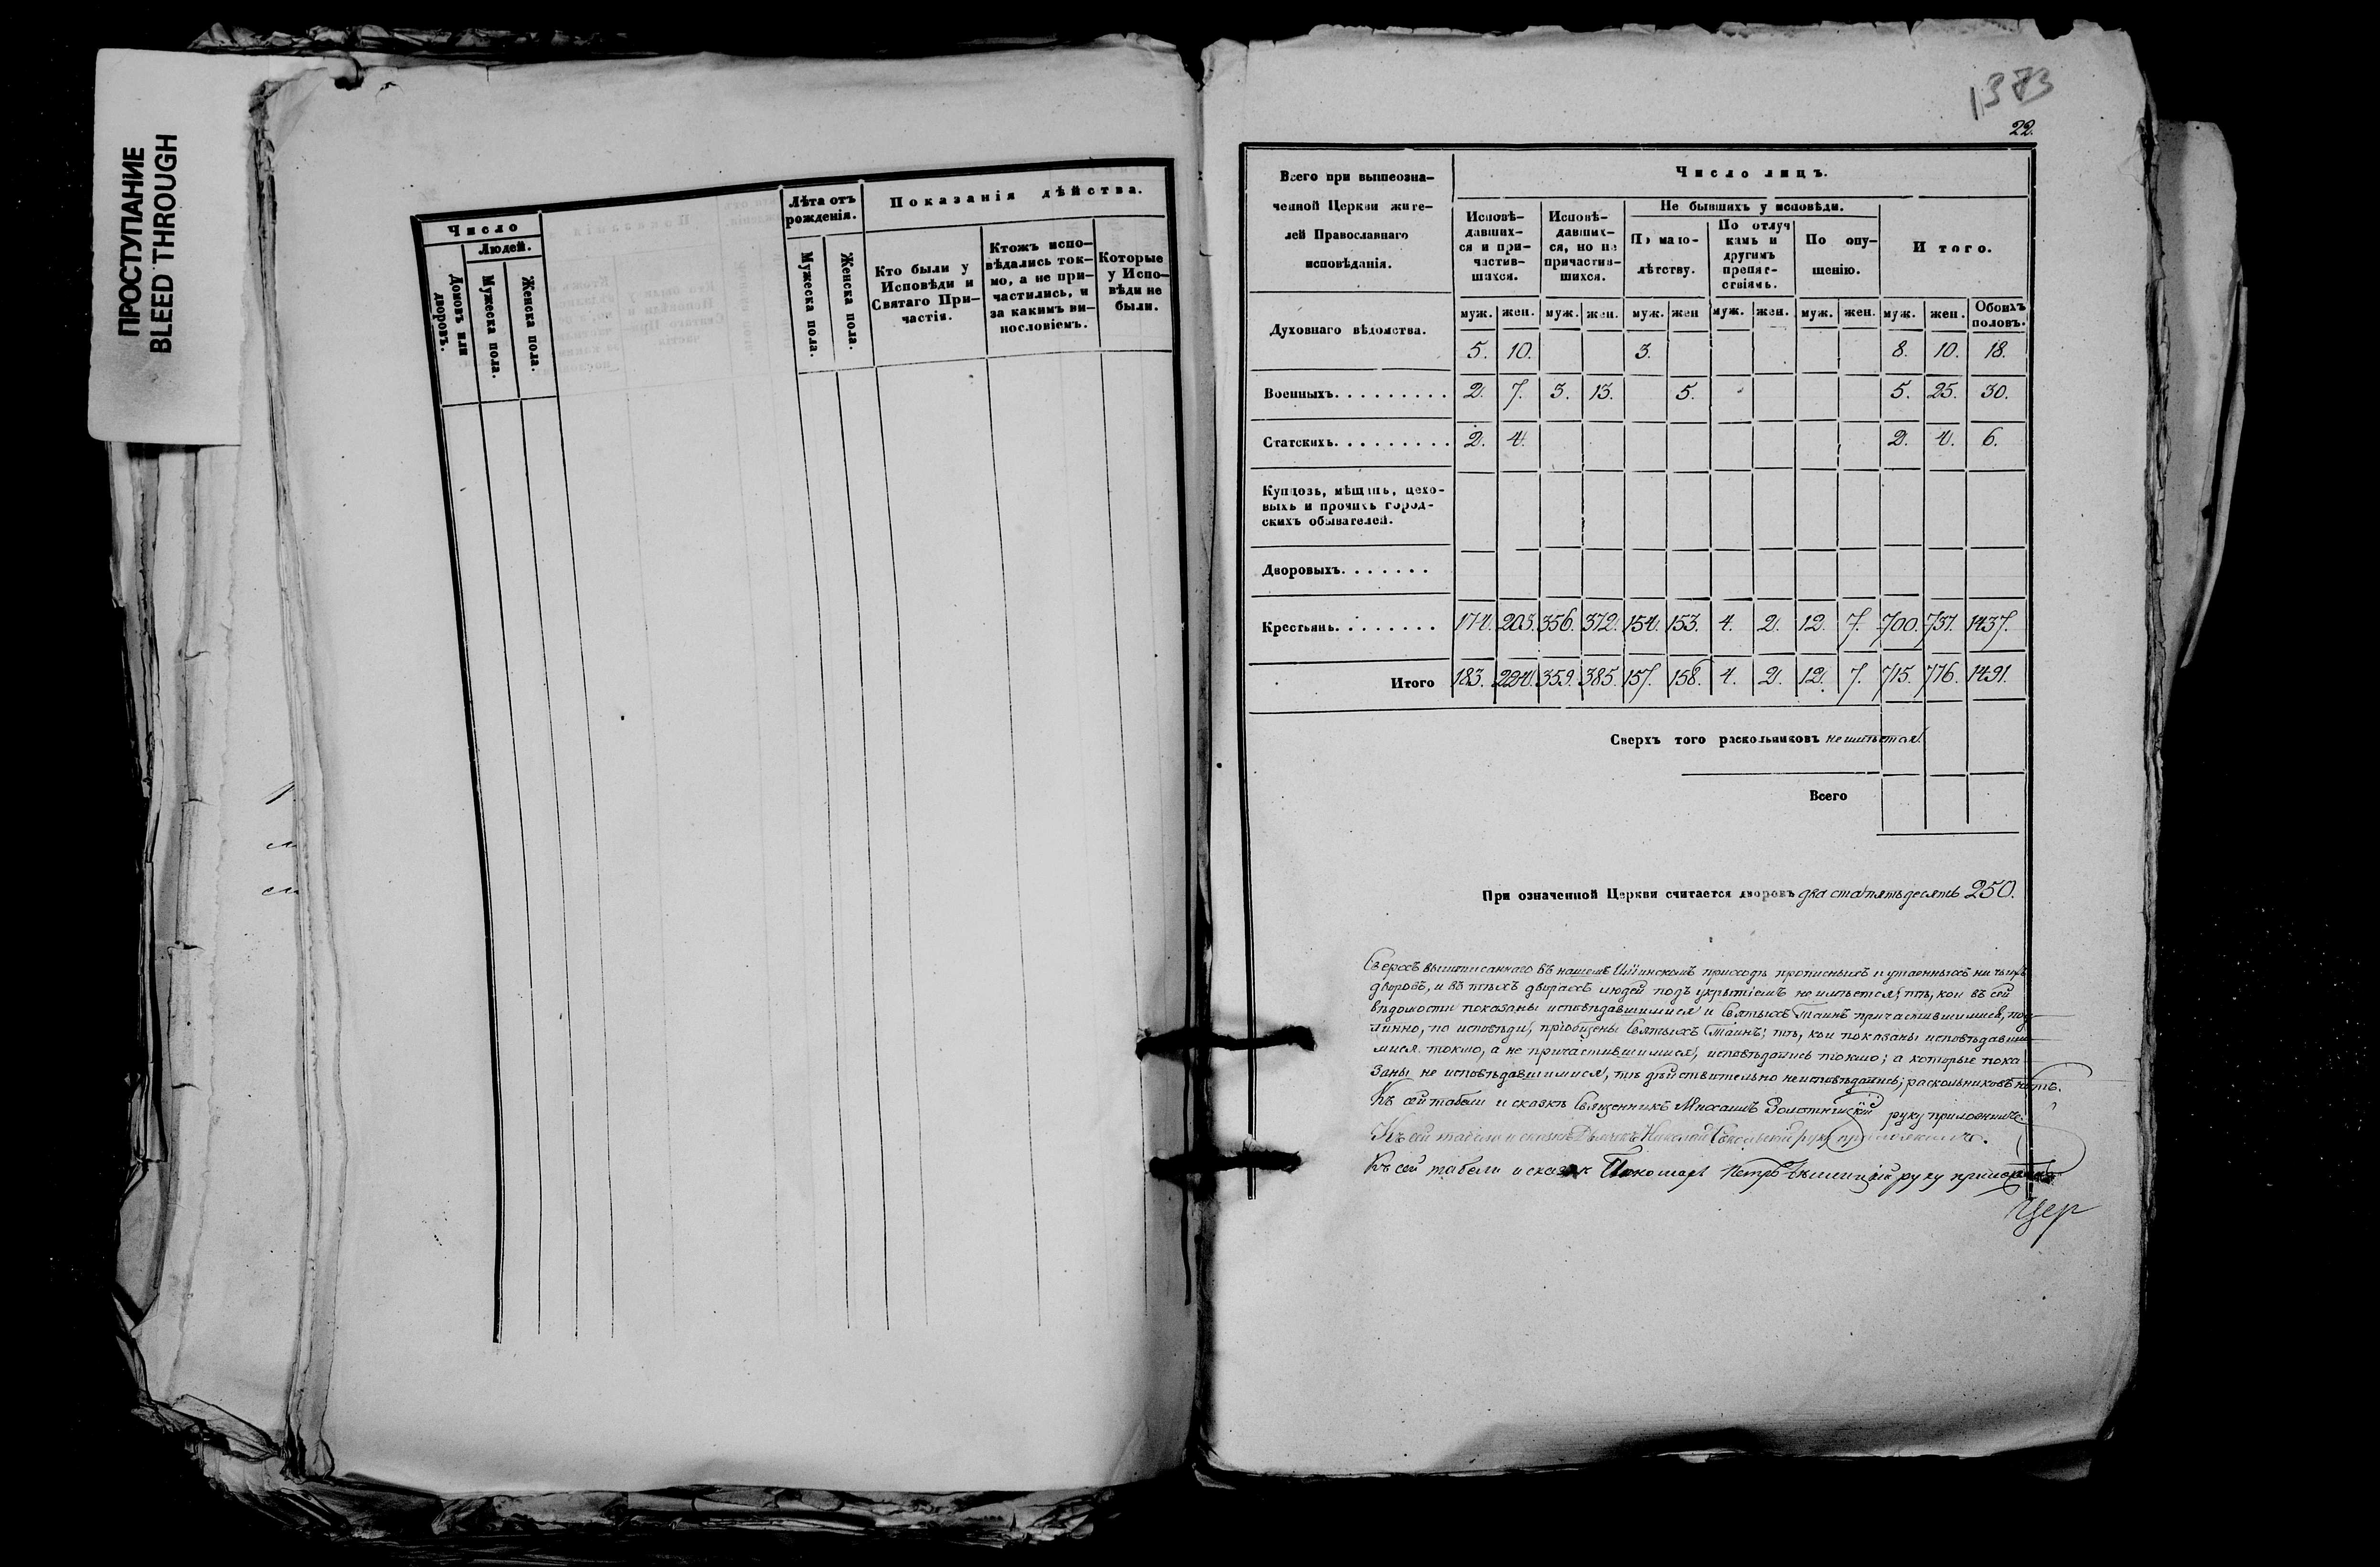 ПРОСТУПАНИЕ
BLEED THROUGH
Число
Людей.
Домовъ или дворовъ.
Мужеска пола.
Женска пола.
Лѣта отъ рожденія.
Мужеска пола.
Женска пола.
Показанія дѣйства.
Кто были у Исповѣди и Святаго При-
частія.
Ктожъ испо-
вѣдались ток-
мо, а не при-
частились, и
за какимъ ви-
нословіемъ.
Которые
у Испо-
вѣди не
были.
1373
22.
Всего при вышеозна-
ченной Церкви жите-
лей Православнаго
исповѣданія.
Число лицъ.
Исповѣ-
давших-
ся и при-
частив-
шихся.
Исповѣ-
давших-
ся, но не
причастив-
шихся.
Не бывшихъ у исповѣди.
По мало-
лѣтству.
По отлуч
камъ и
другимъ
препят-
ствіямъ.
По опу-
щенію.
Итого.
муж. жен. муж. жен. муж. жен муж. жен. муж. жен. муж. жен. Обоихъ половъ.
Духовнаго вѣдомства. 5. 10. 3. 8. 10. 18.
Военныхъ. . . . . . . . . 2. 7. 3. 13. 5. 5. 25. 30.
Статскихъ. . . . . . . . . 2. 4. 2. 4. 6.
Купцовъ, мѣщанъ, цехо-
выхъ и прочихъ город-
скихъ обывателей.
Дворовыхъ. . . . . . .
Крестьянъ. . . . . . . . 174. 203. 356. 372. 154. 153. 4. 2. 12. 7. 700. 737. 1437.
Итого 183. 224. 359. 385. 157. 158. 4. 2. 12. 7. 715. 776. 1491.
Сверхъ того раскольниковъ не имѣется.
Всего
При означенной Церкви считается дворовъ два ста пятьдесятъ 250.
Сверхъ вышеписаннаго въ нашемъ приходѣ прописныхъ и утаенныхъ ни чьихъ
дворовъ, и въ тѣхъ дворахъ людей подъ укрытіемъ не имѣется; тѣ, кои въ сей
вѣдомости показаны исповѣдавшимися и Святыхъ Таинъ причастившимися, под
линно, по исповѣди, пріобщены Святыхъ Таинъ; тѣ, кои показаны исповѣдавши
мися токмо, а не причастившимися, исповѣдались токмо; а которые пока
заны не исповѣдавшимися, тѣ дѣйствительно неисповѣдались; раскольниковъ нѣтъ.
Къ сей табели и сказкѣ Священникъ Михаилъ руку приложилъ.
Къ сей табели и сказкѣ Дьячекъ Николай руку приложилъ.
Къ сей табели и сказкѣ Пономарь Петръ руку приложилъ
Цер